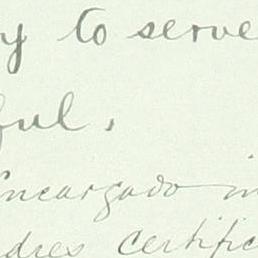 y to serve
ful,
Encargado in
dres certific